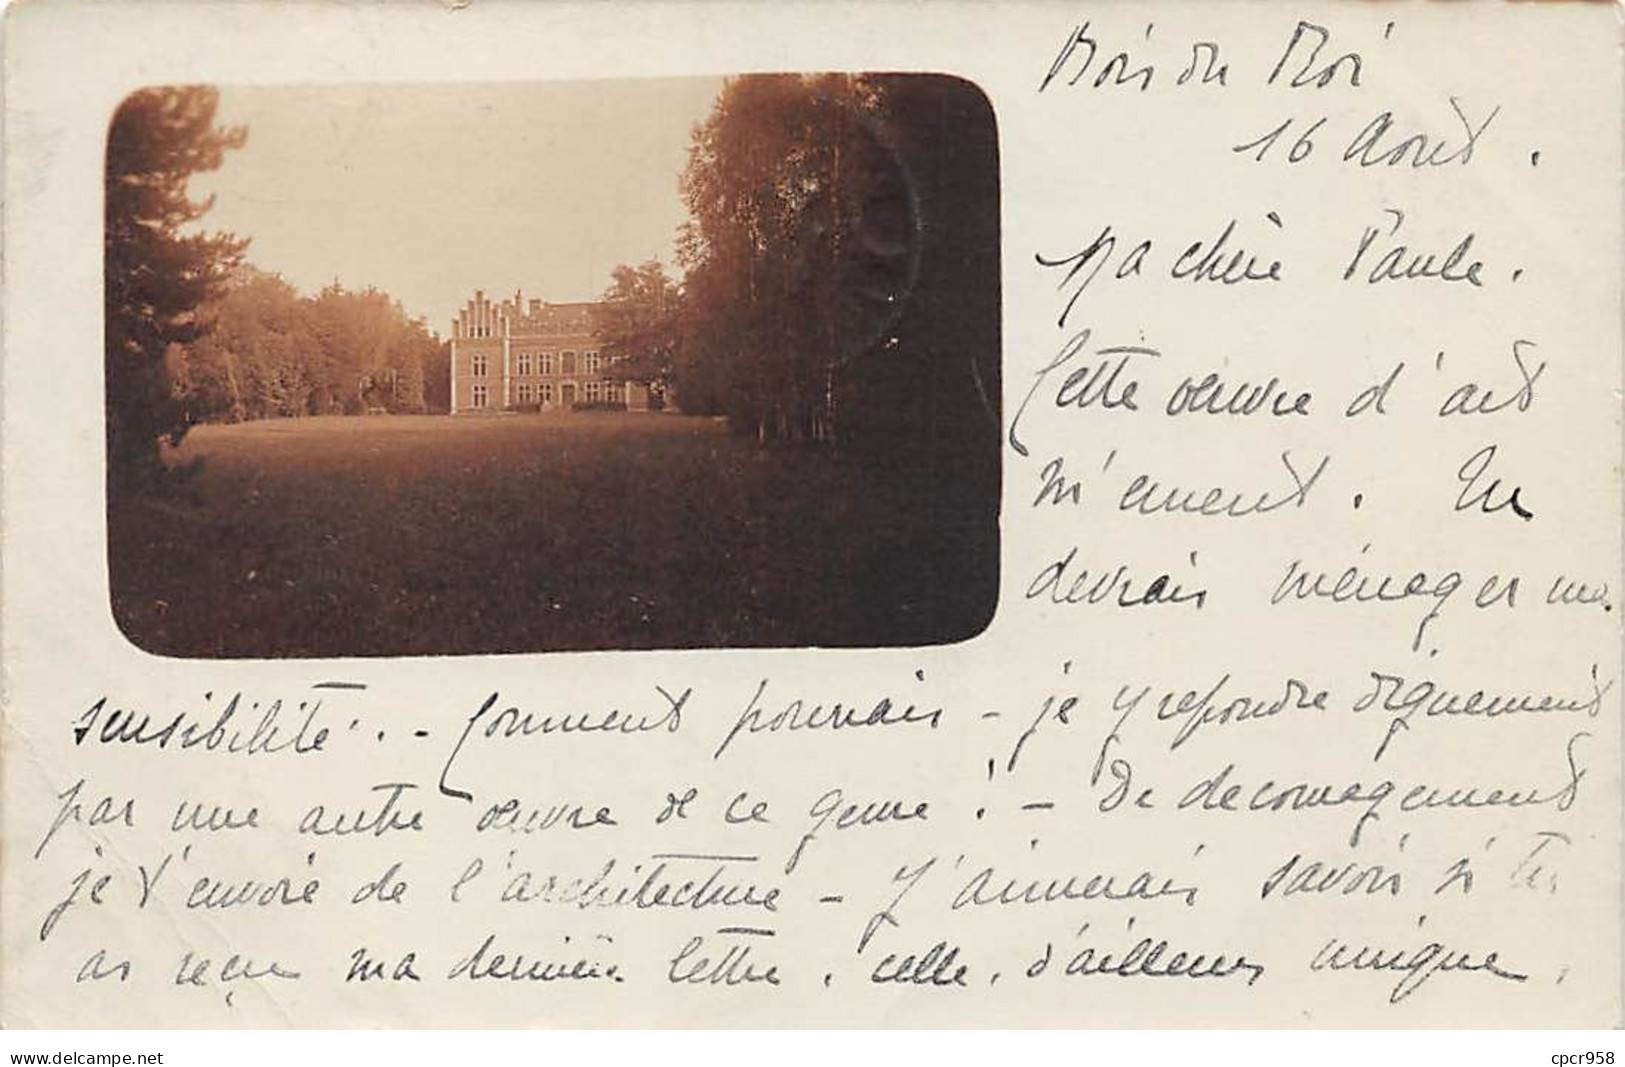 Bois du Roi
16 Août.
Ma chère Paule.
Cette oeuvre d'art
m'émeut. Tu
devrais ménager ma
sensibilité. - Comment pouvais-je y repondre dignement
par une autre oeuvre de ce genre! - De decouragement
je t'envoie de l'architecture - J'aimerais savoir si tu
as reçu ma dernière lettre, celle, d'ailleurs unique,
www.delcampe.net
cpcr958